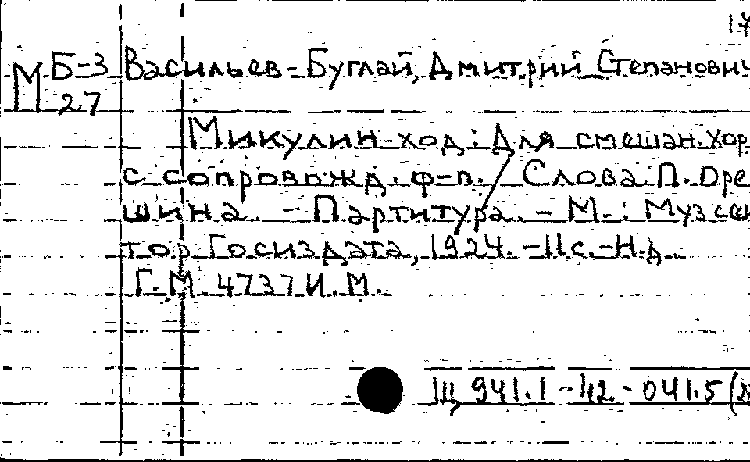 17
М Б-3 Васильев-Буглай, Дмитрий Степанович
27
Микулин ход: Для смешан. хор
с сопровожд. ф-п. Слова П. Оре
шина. - Партитура. - М.: Музсек
тор Госиздата, 1924. - 11 с. - Н.д.
Г.М. 4737 И.М.
Щ 941.1-42-041.5(2